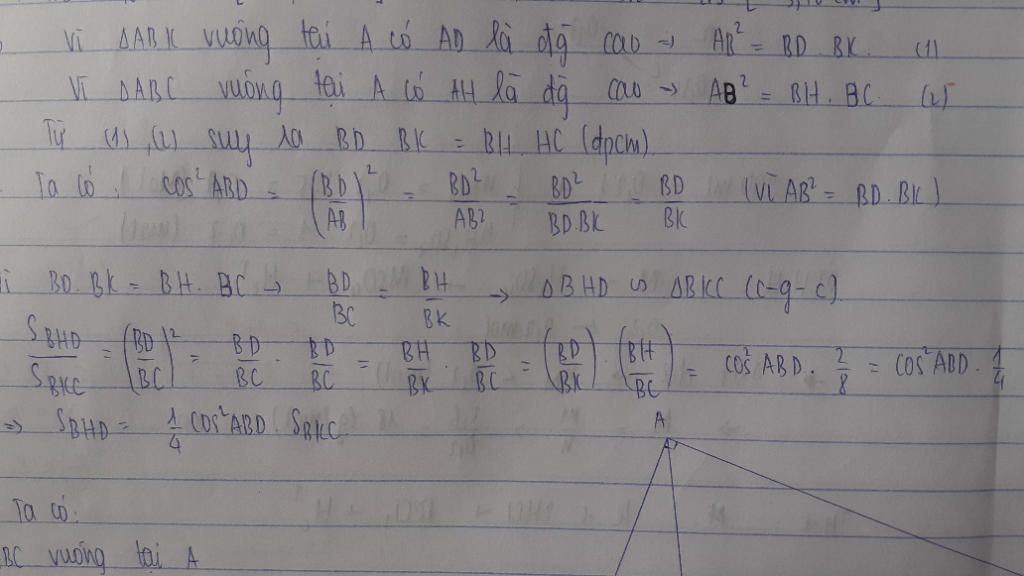 Vì ΔABK vuông tại A có AD là đg cao → AB² = BD. BK. (1)
Vì ΔABC vuông tại A có AH là đg cao → AB² = BH. BC. (2)
Từ (1), (2) suy ra BD BK = BH. HC (đpcm)
Ta có: cos²ABD = (BD/AB)² = BD²/AB² = BD²/BD.BK = BD/BK (vì AB² = BD.BK)
BD. BK = BH. BC → BD/BC = BH/BK → ΔBHD ∽ ΔBKC (c-g-c).
S_BHD/S_BKC = (BD/BC)² = BD/BC . BD/BC = BH/BK . BD/BC = (BD/BK) . (BH/BC) = cos²ABD. 2/8 = cos²ABD. 1/4
⇒ S_BHD = 1/4 cos²ABD. S_BKC
A
Ta có:
BC vuông tại A